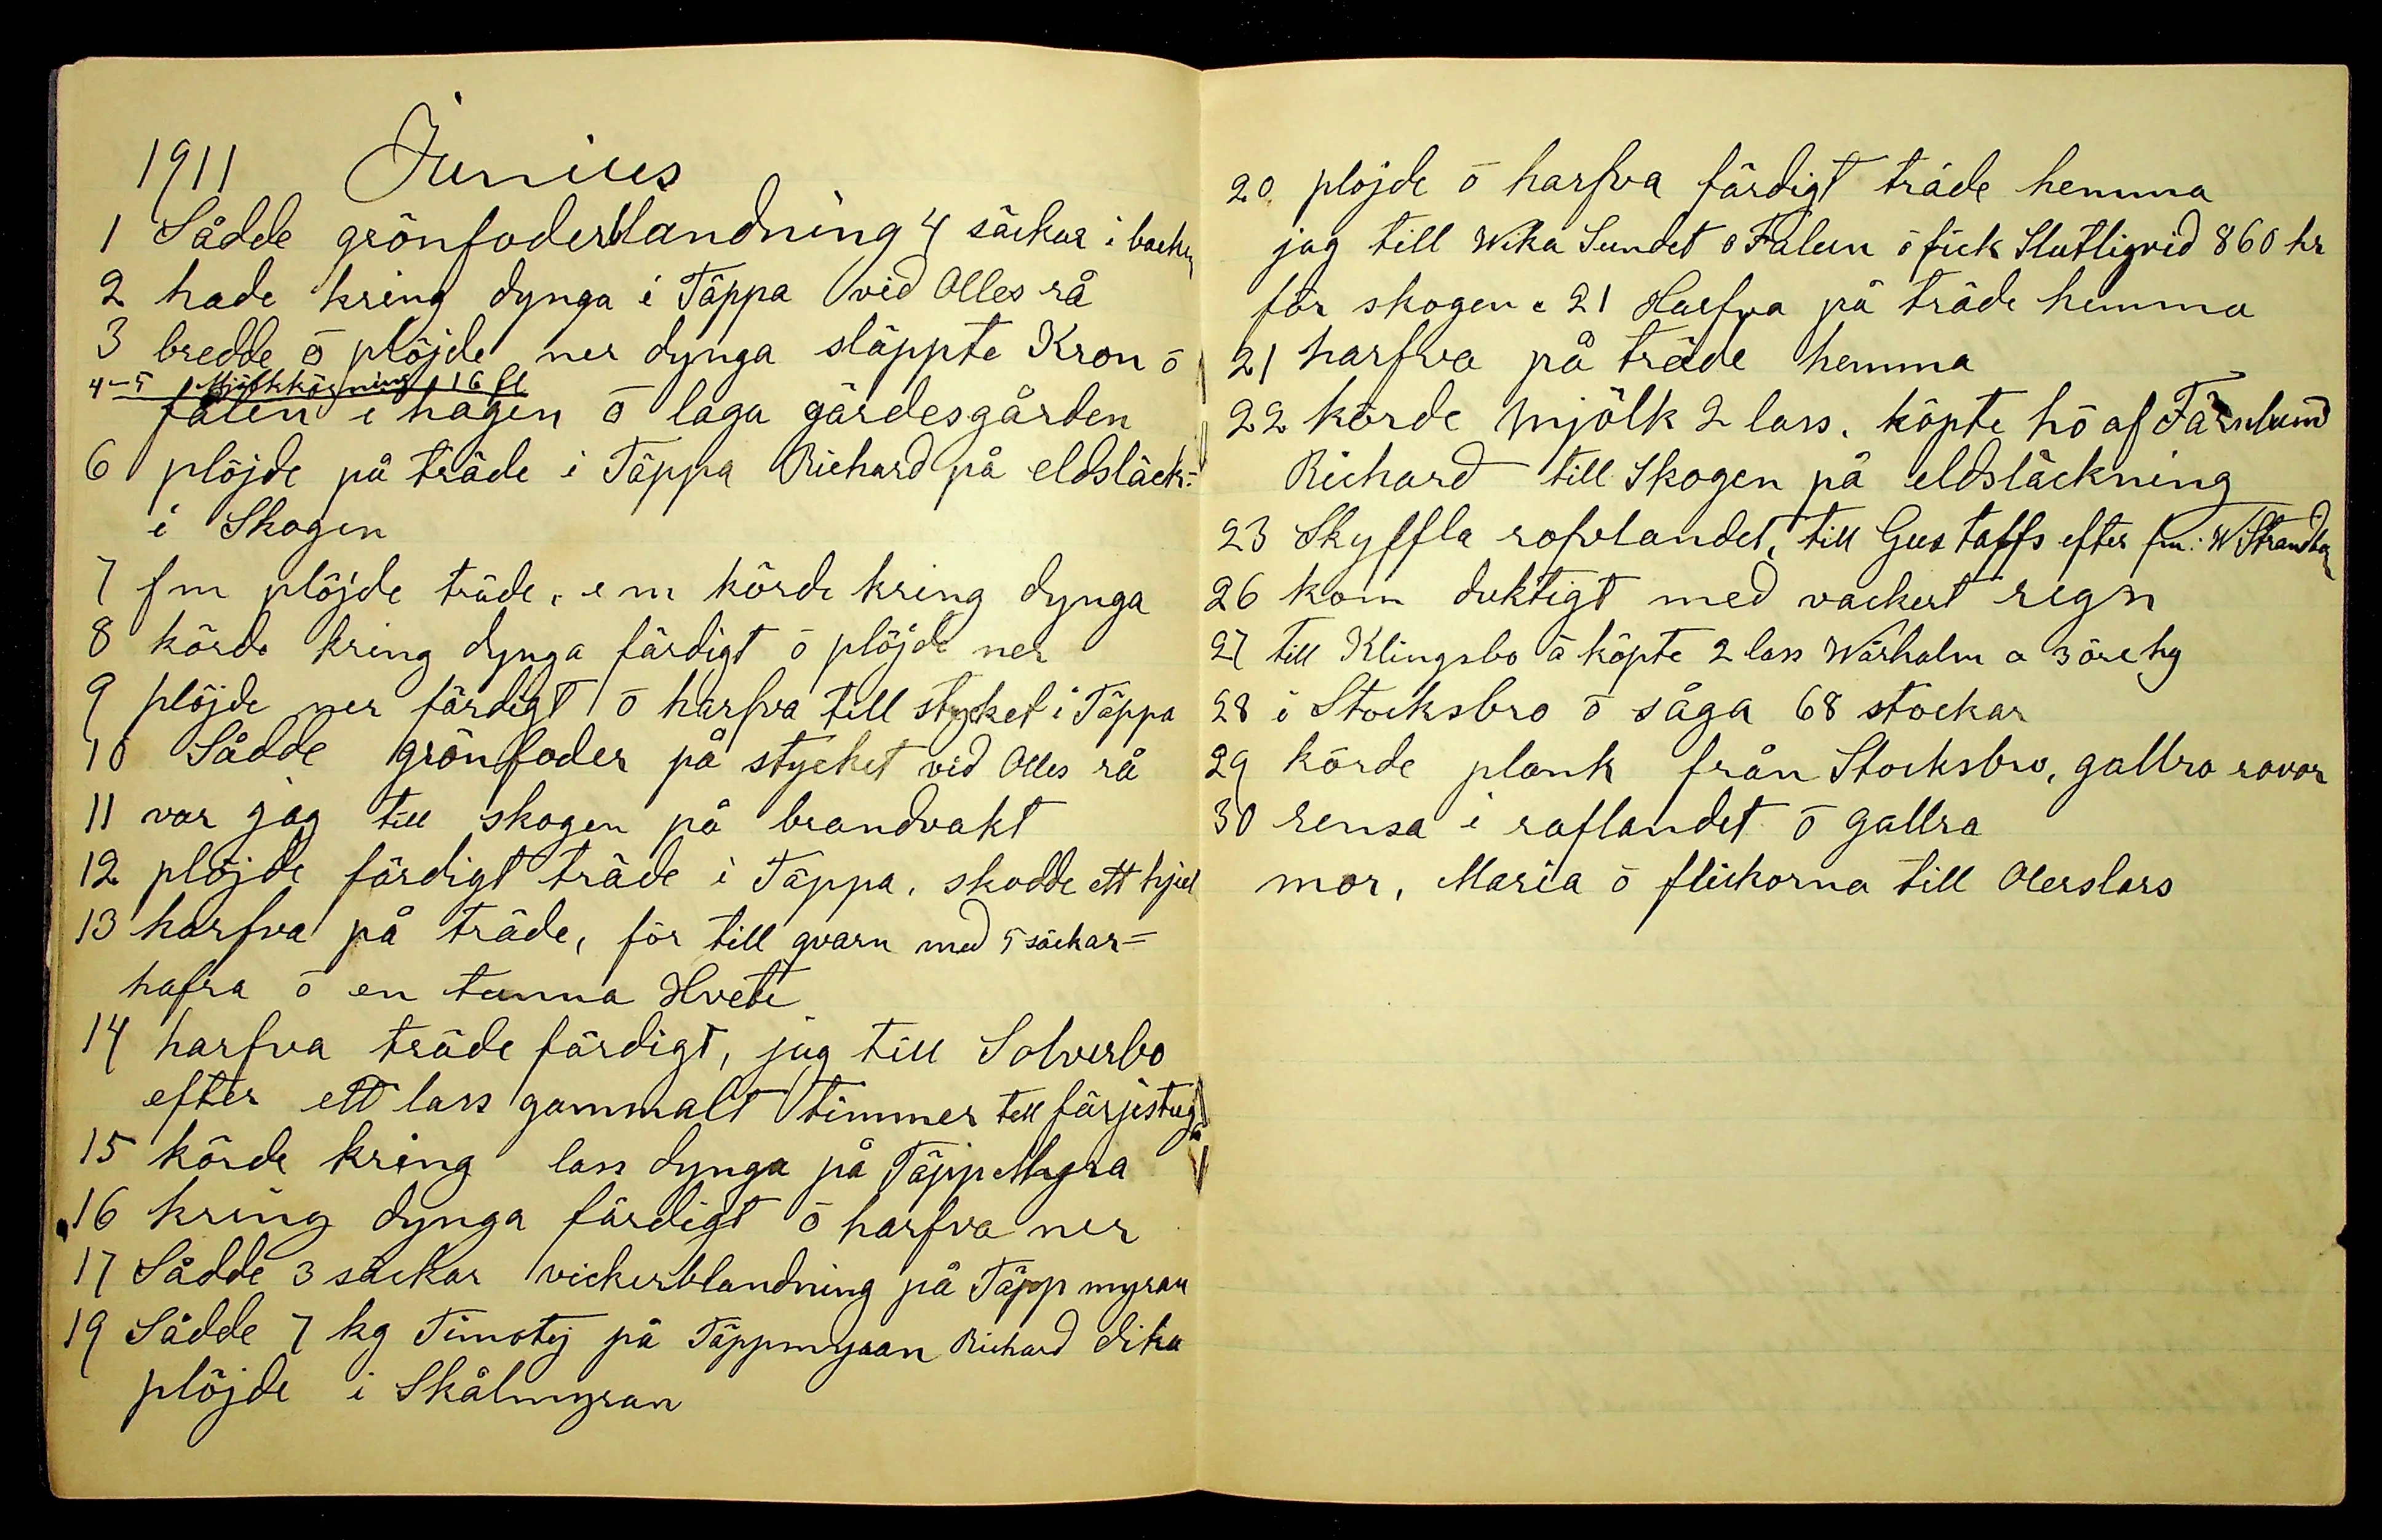 1911 Junius
1 Sådde grönfoderblandning 4 säckar i backen
2 hade kring dynga i Täppa vid Olles rå
3 bredde ö plöjde ner dynga släppte Kron ö
4-5 Mjölkkörning 16 fl
fålen i hagen ö laga gärdesgården
6 plöjde på träde i Täppa Richard på eldsläck-
i Skogen
7 fm plöjde träde, e m körde kring dynga
8 körde kring dynga färdigt ö plöjde ner
9 plöjde ner färdigt ö harfva till stycket i Täppa
10 Sådde grönfoder på stycket vid Olles rå
11 var jag till skogen på brandvakt
12 plöjde färdigt träde i Täppa, skodde ett hjul
13 harfva på träde, för till qvarn med 5 säckar=
hafra ö en tunna Hvete
14 harfva träde färdigt, jag till Solverbo
efter ett lass gammalt timmer till färjstuga
15 körde kring lass dynga på Täpp Myra
16 kring dynga färdigt ö harfva ner
17 Sådde 3 säckar vickerblandning på Täpp myran
19 Sådde 7 kg Timotej på Täppmyran Richard dika
plöjde i Skålmyran
20 plöjde ö harfva färdigt träde hemma
jag till Wika Sundet ö Falun ö fick Slutligvid 860 kr
för skogen. 21 Harfva på träde hemma
21 harfva på träde hemma
22 körde mjölk 2 lass. köpte hö af Färnlund
Richard till Skogen på eldsläckning
23 Skyffla rofvlandet, till Gustaffs efter fm: W Strandberg
26 kom duktigt med vackert regn
27 till Klingsbo å köpte 2 lass Wårhalm a 3 öre hg
28 i Stocksbro ö såga 68 stockar
29 körde plank från Stocksbro, gallra rovor
30 rensa i roflandet ö gallra
mor, Maria ö flickorna till Olerslars